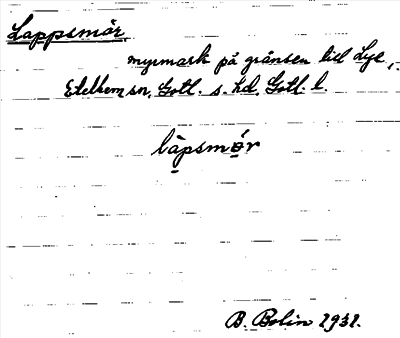 Lappsmår
myrmark på gränsen till Lye,
Etelhem sn, Gotl. s. hd, Gotl. l.
làpsmǫr
B. Bolin 1931.